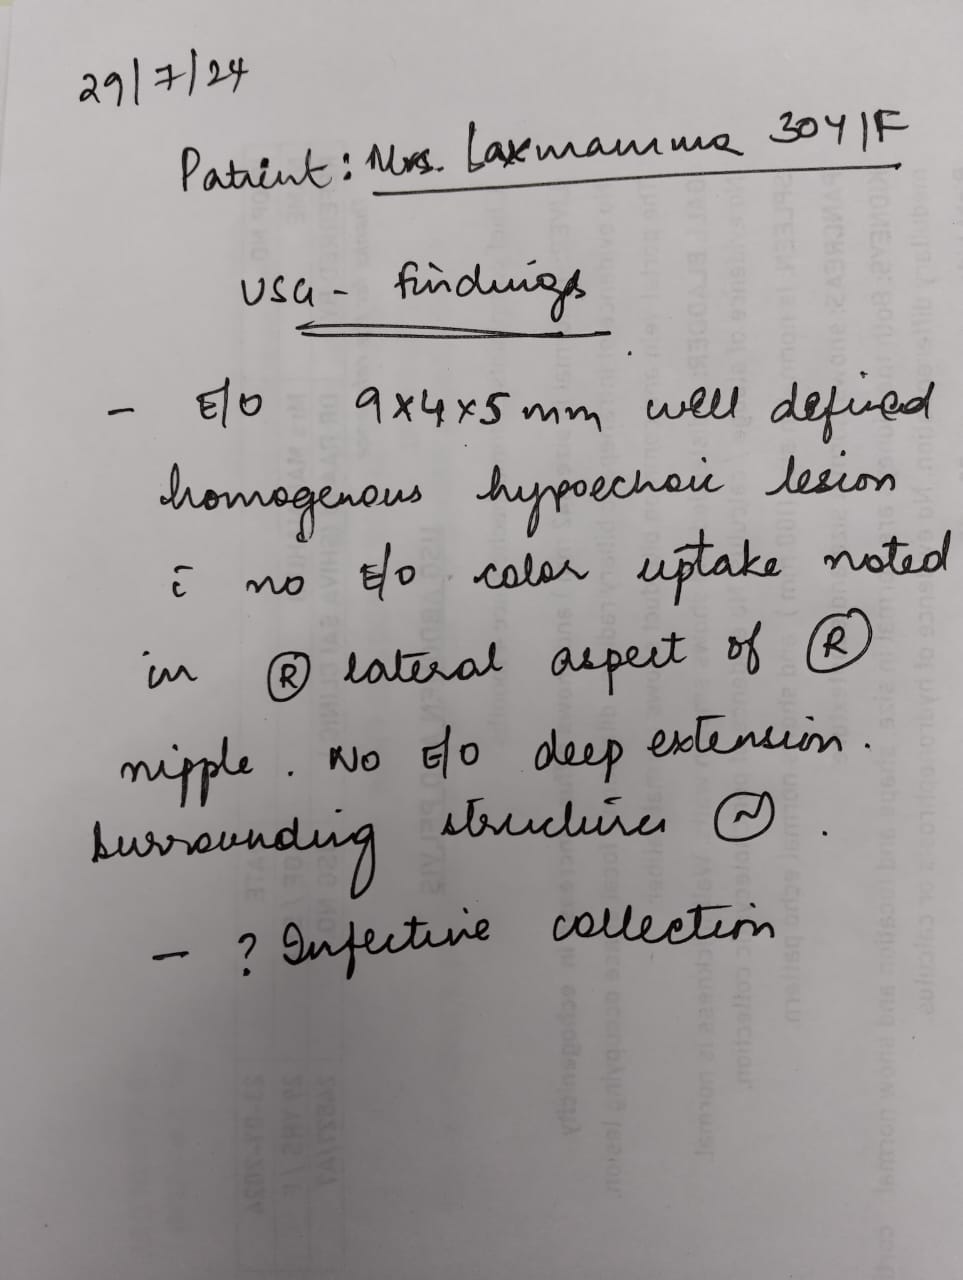 29/7/24
Patient: Mrs. Laxmamma 30Y/F
USG - findings
- E/O 9x4x5 mm well defined
homogenous hypoechoic lesion
c̄ no E/O color uptake noted
in Ⓡ lateral aspect of Ⓡ
nipple. No E/O deep extension.
surrounding structures Ⓝ.
- ? Infective collection